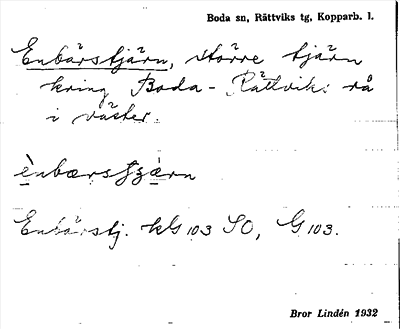 Boda sn, Rättviks tg, Kopparb. l.
Enbärstjärn, större tjärn
kring Boda - Rättvik: rå
i väster.
Enbärstj. kG 103 SO, G 103.
Bror Lindén 1932